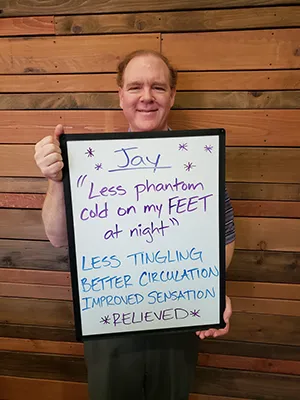 Jay
"Less phantom
cold on my FEET
at night"
LESS TINGLING
BETTER CIRCULATION
IMPROVED SENSATION
*RELIEVED*